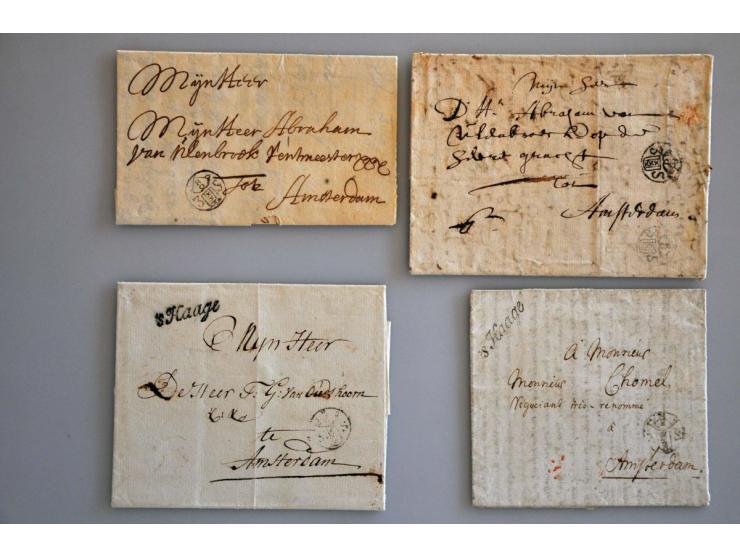 MijnHeer
MijnHeer Abraham
van Uilenbroek Rentmeester
Tot
Amsterdam
Mijn Heer
D'Hr. Abraham van
op de
gracht
tot
Amsterdam
'sHaage
Mijn Heer
De Heer F. G: van Oudshoorn
te
Amsterdam
'sHaage
à Monsieur
Monsieur Chomel
Negociant très-renommé
à
Amsterdam